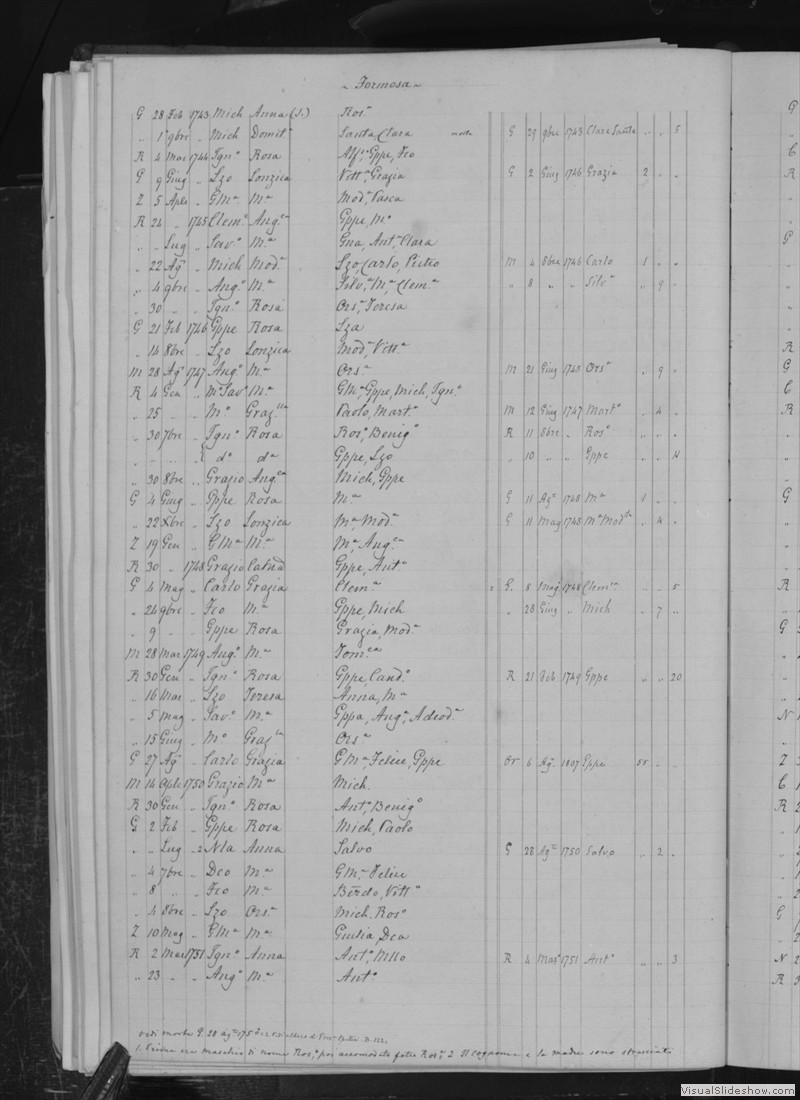 Formosa
G 28 Feb 1743 Mich Anna (S.) Ros.ª
„ 1 9bre „ Mich Domit.ª Santa Clara morta G 29 9bre 1743 Clara Santa „ „ 5
R 4 Mar 1744 Ign.º Rosa Alf.º Gppe, Fco
„ 9 Giug „ Lzo Lonzica Vitt.ª Grazia G 2 Giug 1746 Grazia 2 „ „
Z 5 Aple „ G.M.ª M.ª Mod.ª Pasca
R 24 „ 1745 Clem.º Ang.ca Gppe, M.º
„ „ Lug „ Sav.º M.ª Gna, Ant.ª Clara
„ 22 Ag.º „ Mich Mod.ª Lzo, Carlo, Pietro M 4 8bre 1746 Carlo 1 „ „
„ 4 9bre „ Ang.º M.ª Silv.ª M.ª Clem.ª „ 8 „ „ Silv.ª „ 9 „
„ 30 „ „ Ign.º Rosa Ors.ª Teresa
G 21 Feb 1746 Gppe Rosa Lza
„ 14 8bre „ Lzo Lonzica Mod.ª Vitt.ª
M 28 Ag.º 1747 Ang.º M.ª Ors.ª M 21 Giug 1748 Ors.ª „ 9 „
R 4 Gen „ M.º Sav.º M.ª G.M.ª Gppe, Mich, Ign.º
„ 25 „ „ M.º Graz.lla Paolo, Mart.º M 12 Giug 1747 Mart.º „ 4 „
„ 30 7bre „ Ign.º Rosa Ros.º Benig.º R 11 8bre „ Ros.º „ „ „
„ „ „ { d.º d.ª Gppe, Lzo „ 10 „ „ Gppe „ „ 14
„ 30 8bre „ Grazio Ang.ca Mich, Gppe
G 4 Giug „ Gppe Rosa M.ª G 11 Ag.º 1748 M.ª 1 „ „
„ 22 Xbre „ Lzo Lonzica M.ª Mod.ª G 11 Mag 1748 M.ª Mod.ta „ 4 „
Z 19 Gen „ G.M.ª M.ª M.ª Ang.ca
R 30 „ 1748 Grazio Catna Gppe, Ant.ª
G 4 Mag „ Carlo Grazia Clem.ª G. 8 Mag 1748 Clem.ª „ „ 5
„ 24 9bre „ Fco M.ª Gppe, Mich „ 28 Giug „ Mich „ 7 „
„ 9 „ „ Gppe Rosa Grazia, Mod.ª
M 28 Mar 1749 Ang.º M.ª Tom.ca
R 30 Gen „ Ign.º Rosa Gppe, Cand.º R 21 Feb 1749 Gppe „ „ 20
„ 16 Mar „ Lzo Teresa Anna, M.ª
„ 5 Mag „ Sav.º M.ª Gppa, Ang.ª, Adeod.ª
„ 15 Giug „ M.º Graz.lla Ors.ª
G 27 Ag.º „ Carlo Grazia G.M.ª Felice, Gppe Or 6 Ag.º 1807 Gppe 58 „ „
M 14 Aple 1750 Grazio M.ª Mich.
R 30 Gen „ Ign.º Rosa Ant.º, Benig.º
G 2 Feb „ Gppe Rosa Mich, Paolo
„ „ Lug „ 2 Nla Anna Salvo G 28 Ag.º 1750 Salvo „ 2 „
„ 4 7bre „ Dco M.ª G.M.ª Felice
„ 8 „ „ Fco M.ª Berdo, Vitt.º
„ 4 8bre „ Lzo Ors.ª Mich. Ros.º
Z 10 Mag „ G.M.ª M.ª Giulia, Dca
R 2 Mar 1751 Ign.º Anna Ant.º, Mllo R 4 Mar 1751 Ant.º „ „ 3
„ 23 „ „ Ang.º M.ª Ant.º
vedi morte G. 28 Ag.º 175
1. Prima era maschio di nome Ros.º, poi accomodato fatto Ros.ª 2. Il cognome e la madre sono stracciati
G
R
C
R
G
R
G
C
R
G
R
G
N
Z
C
R
G
N
R
VisualSlideshow.com